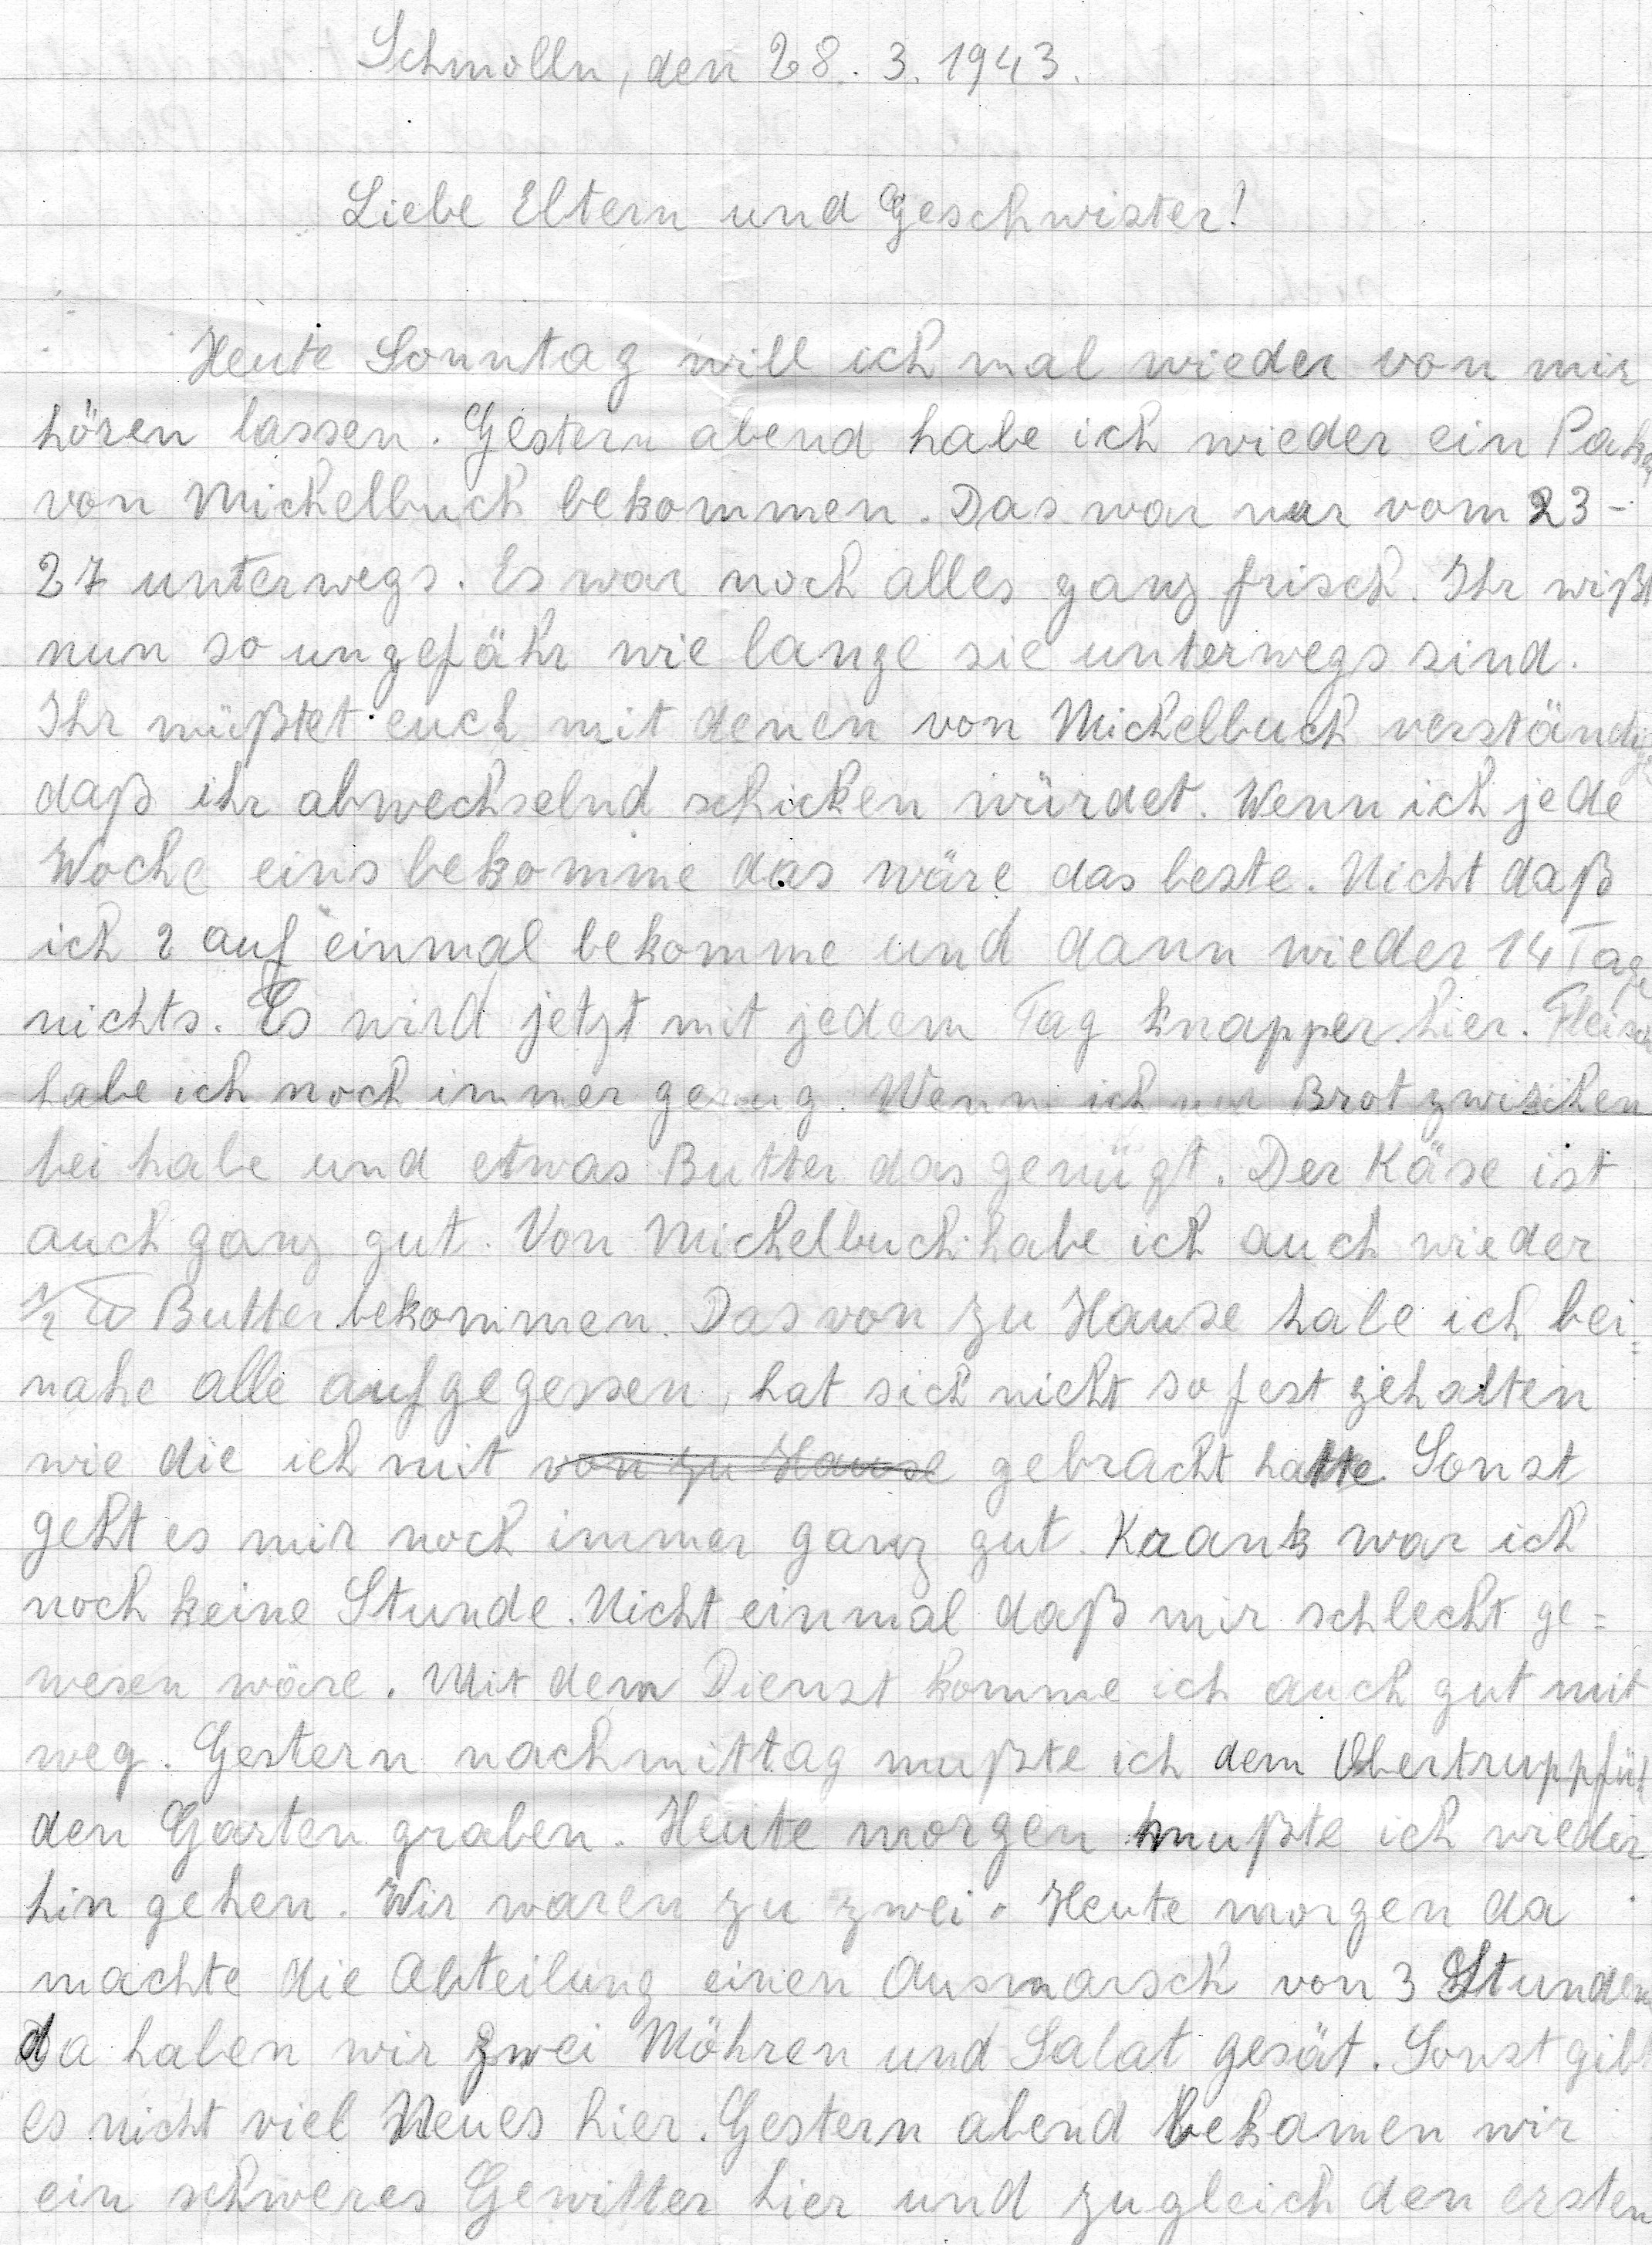 Schmolln, den 28. 3. 1943.
Liebe Eltern und Geschwister!
Heute Sonntag will ich mal wieder von mir
hören lassen. Gestern abend habe ich wieder ein Paket
von Michelbuch bekommen. Das war nur vom 23-
27 unterwegs. Es war noch alles ganz frisch. Ihr wißt
nun so ungefähr wie lange sie unterwegs sind.
Ihr müßtet euch mit denen von Michelbuch verständig
daß ihr abwechselnd schicken würdet. Wenn ich jede
Woche eins bekomme das wäre das beste. Nicht daß
ich 2 auf einmal bekomme und dann wieder 14 Tage
nichts. Es wird jetzt mit jedem Tag knapper hier. Fleisch
habe ich noch immer genug. Wenn ich nur Brot zwischen
bei habe und etwas Butter das genügt. Der Käse ist
auch ganz gut. Von Michelbuch habe ich auch wieder
1/2 ℔ Butter bekommen. Das von zu Hause habe ich bei=
nahe alle aufgegessen, hat sich nicht so fest gehalten
wie die ich mit von zu Hause gebracht hatte. Sonst
geht es mir noch immer ganz gut. Krank war ich
noch keine Stunde. Nicht einmal daß mir schlecht ge=
wesen wäre. Mit dem Dienst komme ich auch gut mit
weg. Gestern nachmittag mußte ich dem Obertruppfüh
den Garten graben. Heute morgen mußte ich wieder
hin gehen. Wir waren zu zwei. Heute morgen da
machte die Abteilung einen Ausmarsch von 3 Stunden
da haben wir zwei Möhren und Salat gesät. Sonst gibt
es nicht viel Neues hier. Gestern abend bekamen wir
ein schweres Gewitter hier und zugleich den ersten